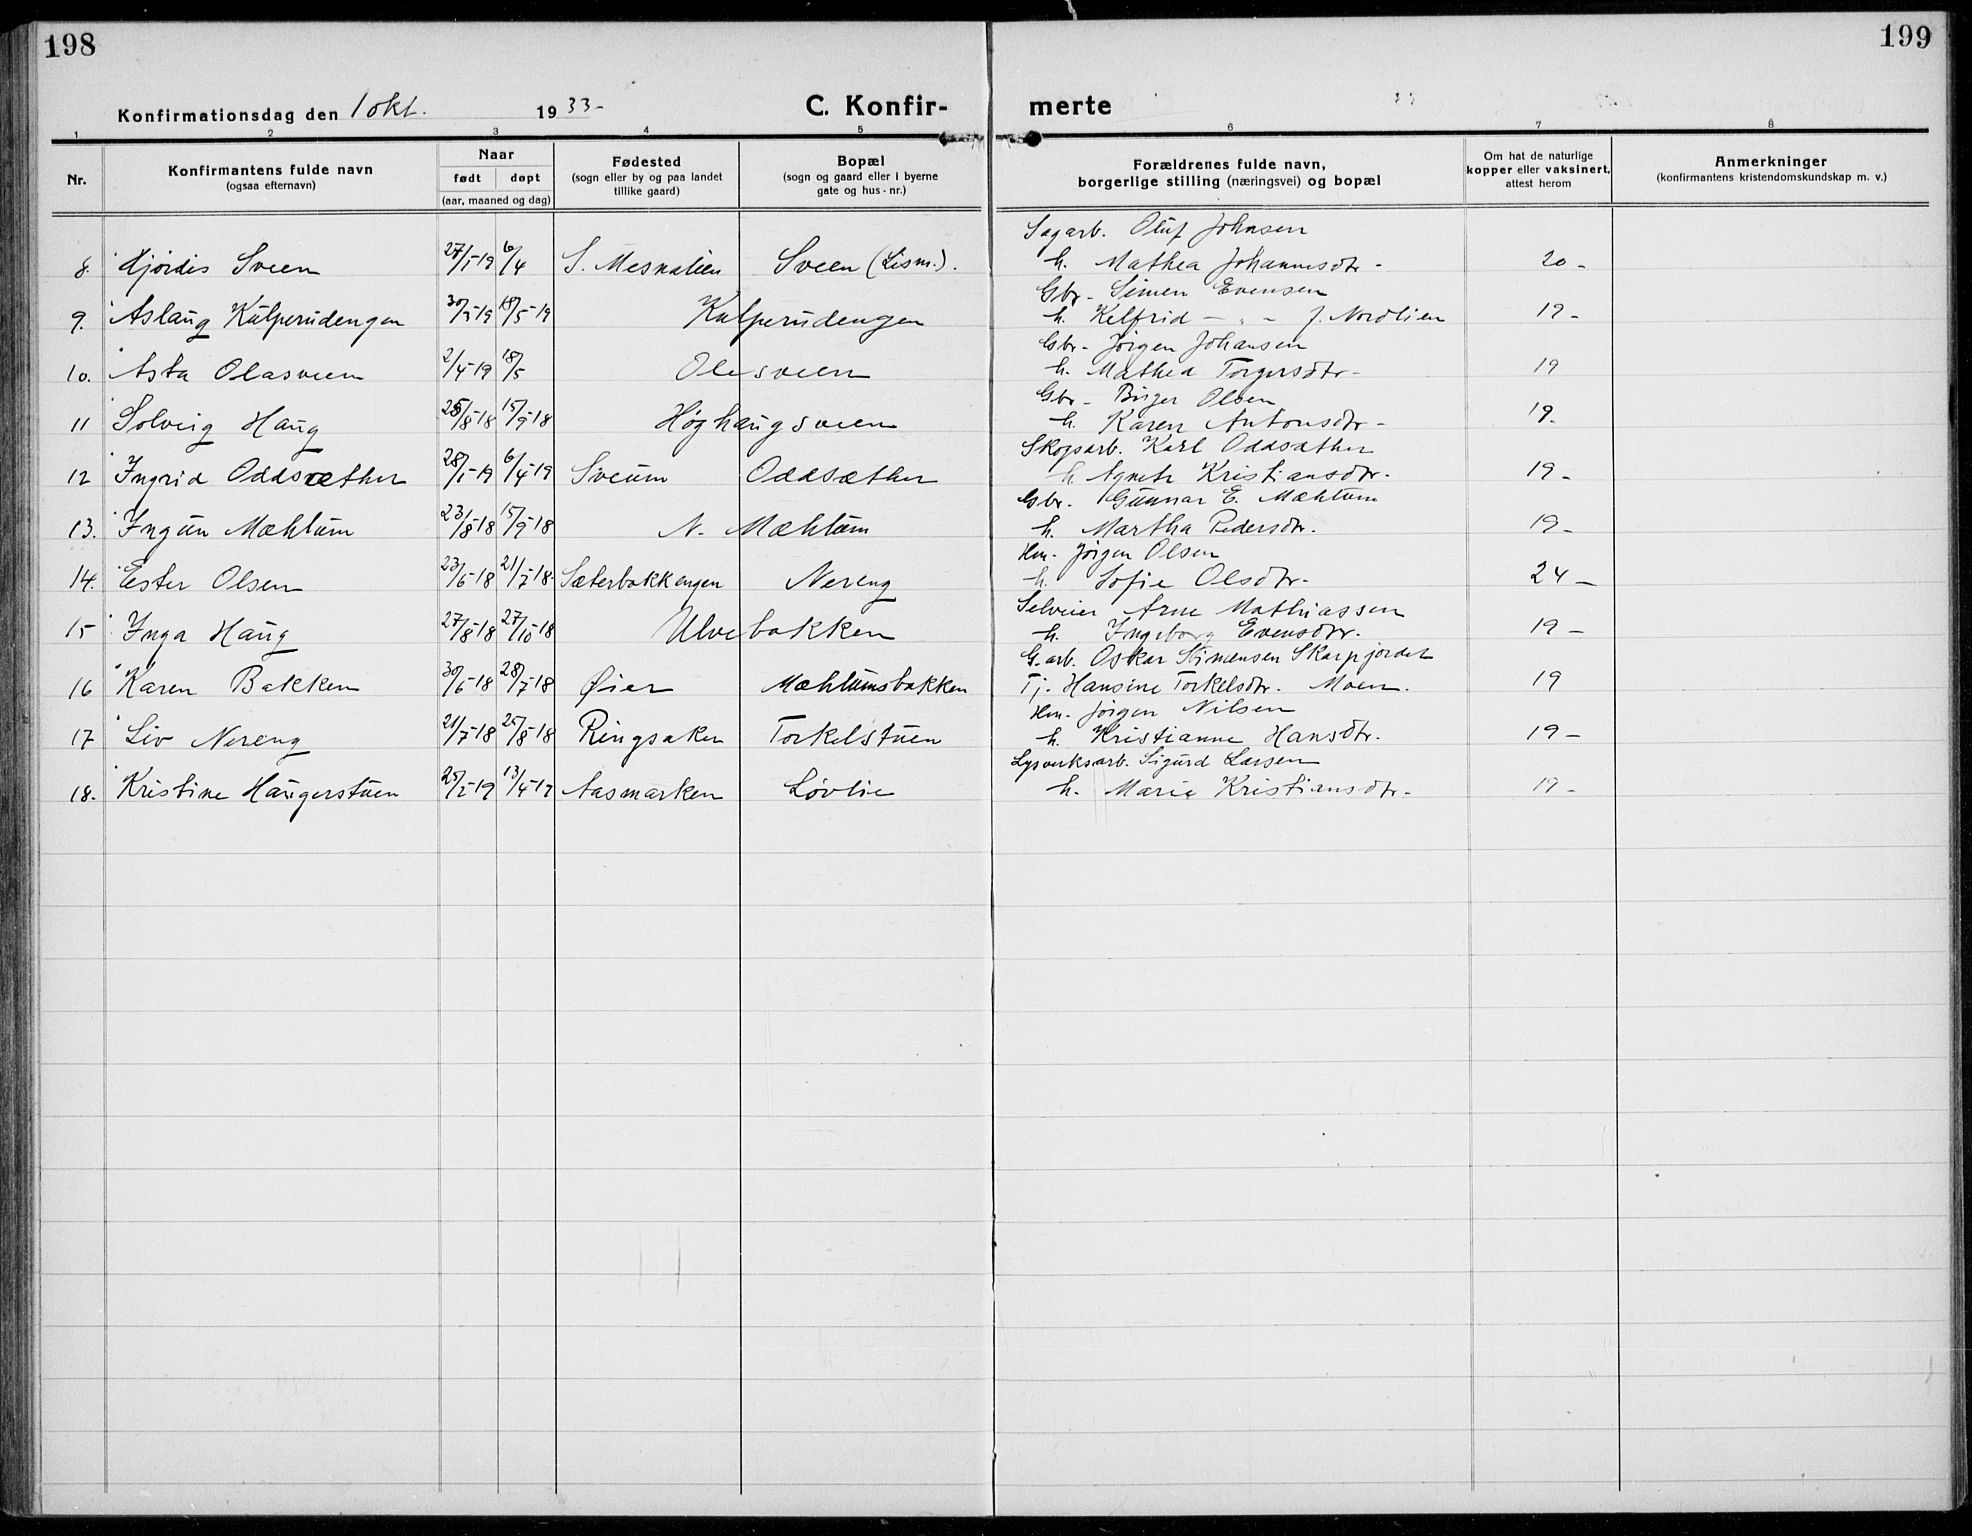 198
199
Konfirmationsdag den 1 okt. 1933-
C. Konfir-
merte
1 2 3 4 5 6 7 8
Nr.
Konfirmantens fulde navn
(ogsaa efternavn)
Naar
født døpt
(aar, maaned og dag)
Fødested
(sogn eller by og paa landet
tillike gaard)
Bopæl
(sogn og gaard eller i byerne
gate og hus-nr.)
Forældrenes fulde navn,
borgerlige stilling (næringsvei) og bopæl
Om hat de naturlige
kopper eller vaksinert,
attest herom
Anmerkninger
(konfirmantens kristendomskundskap m. v.)
Sagarb. Oluf Johnsen
8. Hjørdis Sveen 27/1-19 6/4 S. Mesnalien Sveen (Lism.). h. Mathea Johannesdtr- 20-
Gbr- Simen Evensen
9. Aslaug Kulperudengen 30/3-19 18/5-19 Kulperudengen h. Kelfrid - " - f. Nordlien 19-
Gbr- Jörgen Johansen
10. Asta Olasveen 2/4-19 18/5 Olasveen h. Mathea Torgersdtr- 19
Gbr- Birger Olsen
11 Solveig Haug 25/8-18 15/9-18 Høghaugsveen h. Karen Antonsdtr- 19.
Skogsarb. Karl Oddsæther
12 Ingrid Oddsæther 28/1-19 6/4-19 Sveum Oddsæther h. Agnete Kristiansdtr. 19-
Gbr. Gunnar E. Mæhlum
13. Ingun Mæhlum 23/8-18 15/9-18 N. Mæhlum h. Martha Pedersdtr. 19-
Hm. Jørgen Olsen
14. Ester Olsen 23/6-18 21/7-18. Sæterbakkengen Nereng h. Sofie Olsdtr- 24-
Selveier Arne Mathiassen
15 Inga Haug 27/8-18 27/10-18 Ulvebakken h. Ingeborg Evensdtr. 19-
G.arb. Oskar Simensen Skarpjordet
16 Karen Bakken 30/6-18 28/7-18 Øier Mæhlumsbakken Tj. Hansine Torkelsdtr. Moen. 19
Hm- Jørgen Nilsen
17 Liv Nereng 21/7-18 25/8-18 Ringsaker Torkelstuen h. Kristianne Hansdtr. 19-
Lysverksarb. Sigurd Larsen
18. Kristine Haugerstuen 25/2-19 13/4-19 Aasmarken Løvlie h. Marie Kristiansdtr- 19-